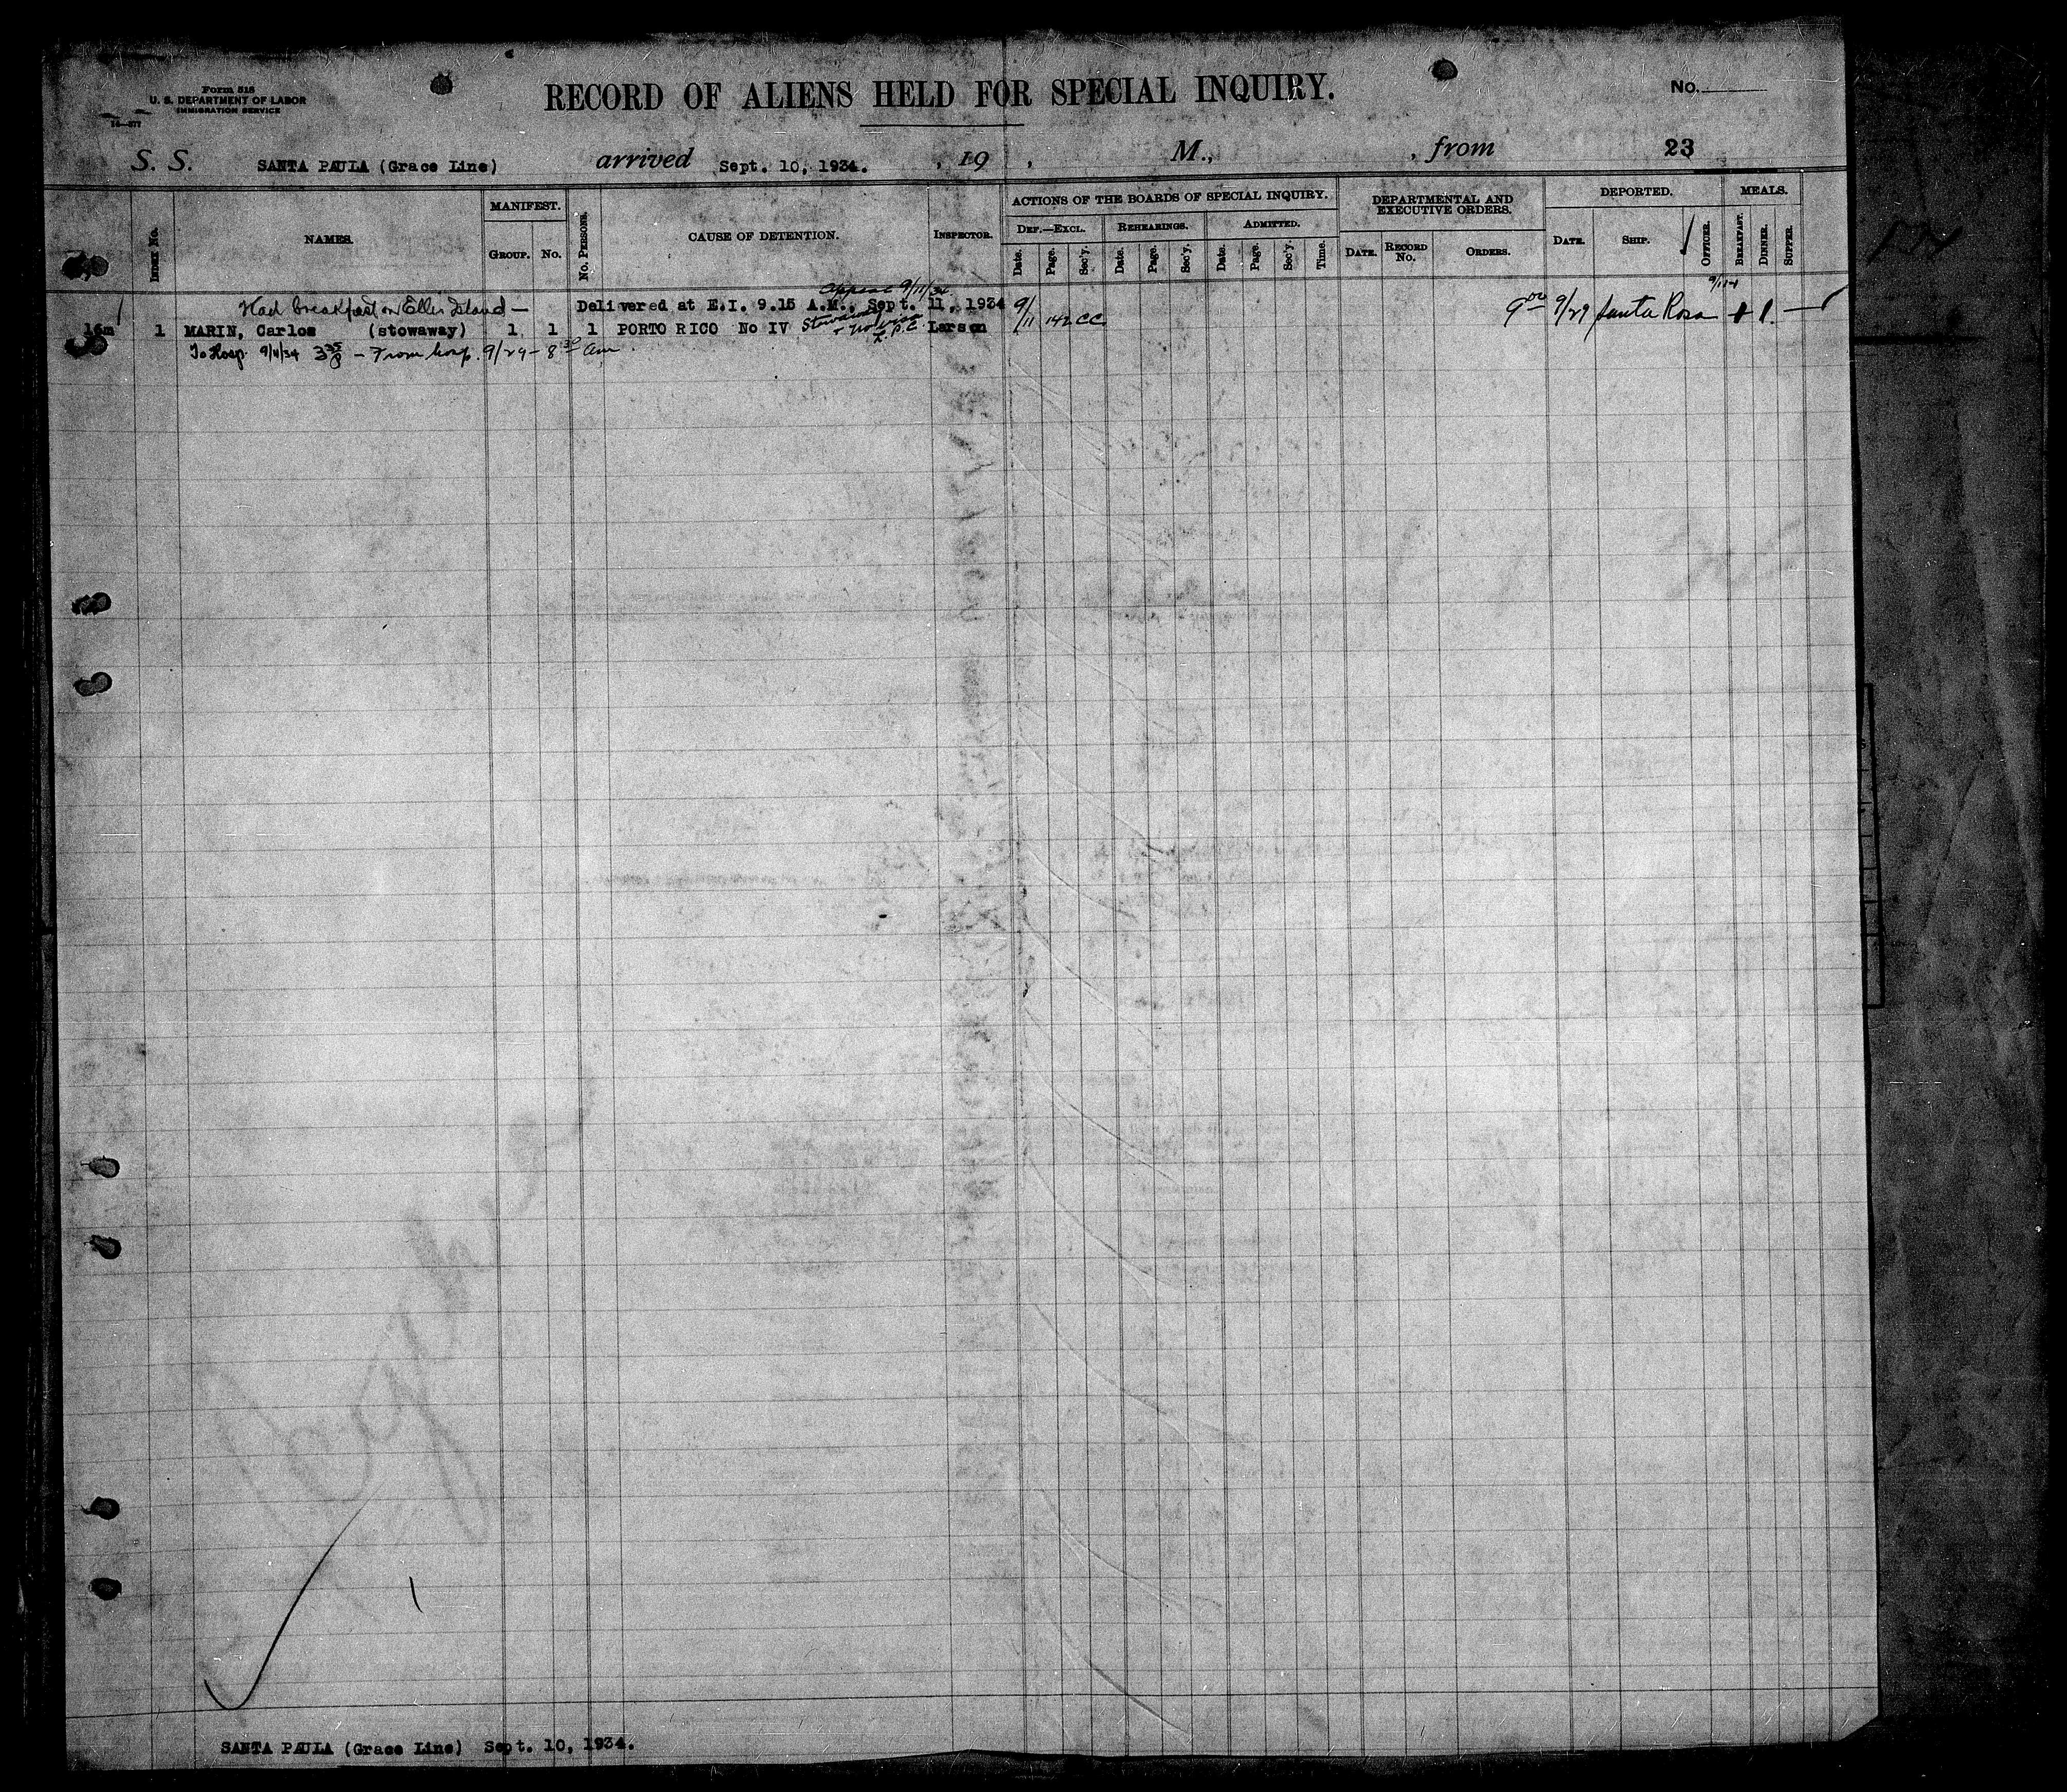 Form 518
U. S. DEPARTMENT OF LABOR
IMMIGRATION SERVICE
14—577
RECORD OF ALIENS HELD FOR SPECIAL INQUIRY.
No.
S. S. SANTA PAULA (Grace Line) arrived Sept. 10, 1934. , 19 , M., , from 23
INDEX No.
NAMES.
MANIFEST.
GROUP. No.
No. PERSONS.
CAUSE OF DETENTION.
INSPECTOR.
ACTIONS OF THE BOARDS OF SPECIAL INQUIRY.
DEF.—EXCL. REHEARINGS. ADMITTED.
Date. Page. Sec'y. Date. Page. Sec'y. Date. Page. Sec'y. Time.
DEPARTMENTAL AND
EXECUTIVE ORDERS.
DATE. RECORD No. ORDERS.
DEPORTED.
DATE. SHIP. OFFICER.
MEALS.
BREAKFAST. DINNER. SUPPER.
appeal 9/11/34
Had breakfast on Ellis Island — Delivered at E.I. 9.15 A.M., Sept. 11, 1934
16m 1 MARIN, Carlos (stowaway) 1 1 1 PORTO RICO No IV Stowaway + no visa P.C. Larson 9/11 142 CC 9 00 9/29 Santa Rosa 1 1 —
To Hosp 9/11/34 3 35 P — From hosp. 9/29 - 8 30 am
SANTA PAULA (Grace Line) Sept. 10, 1934.